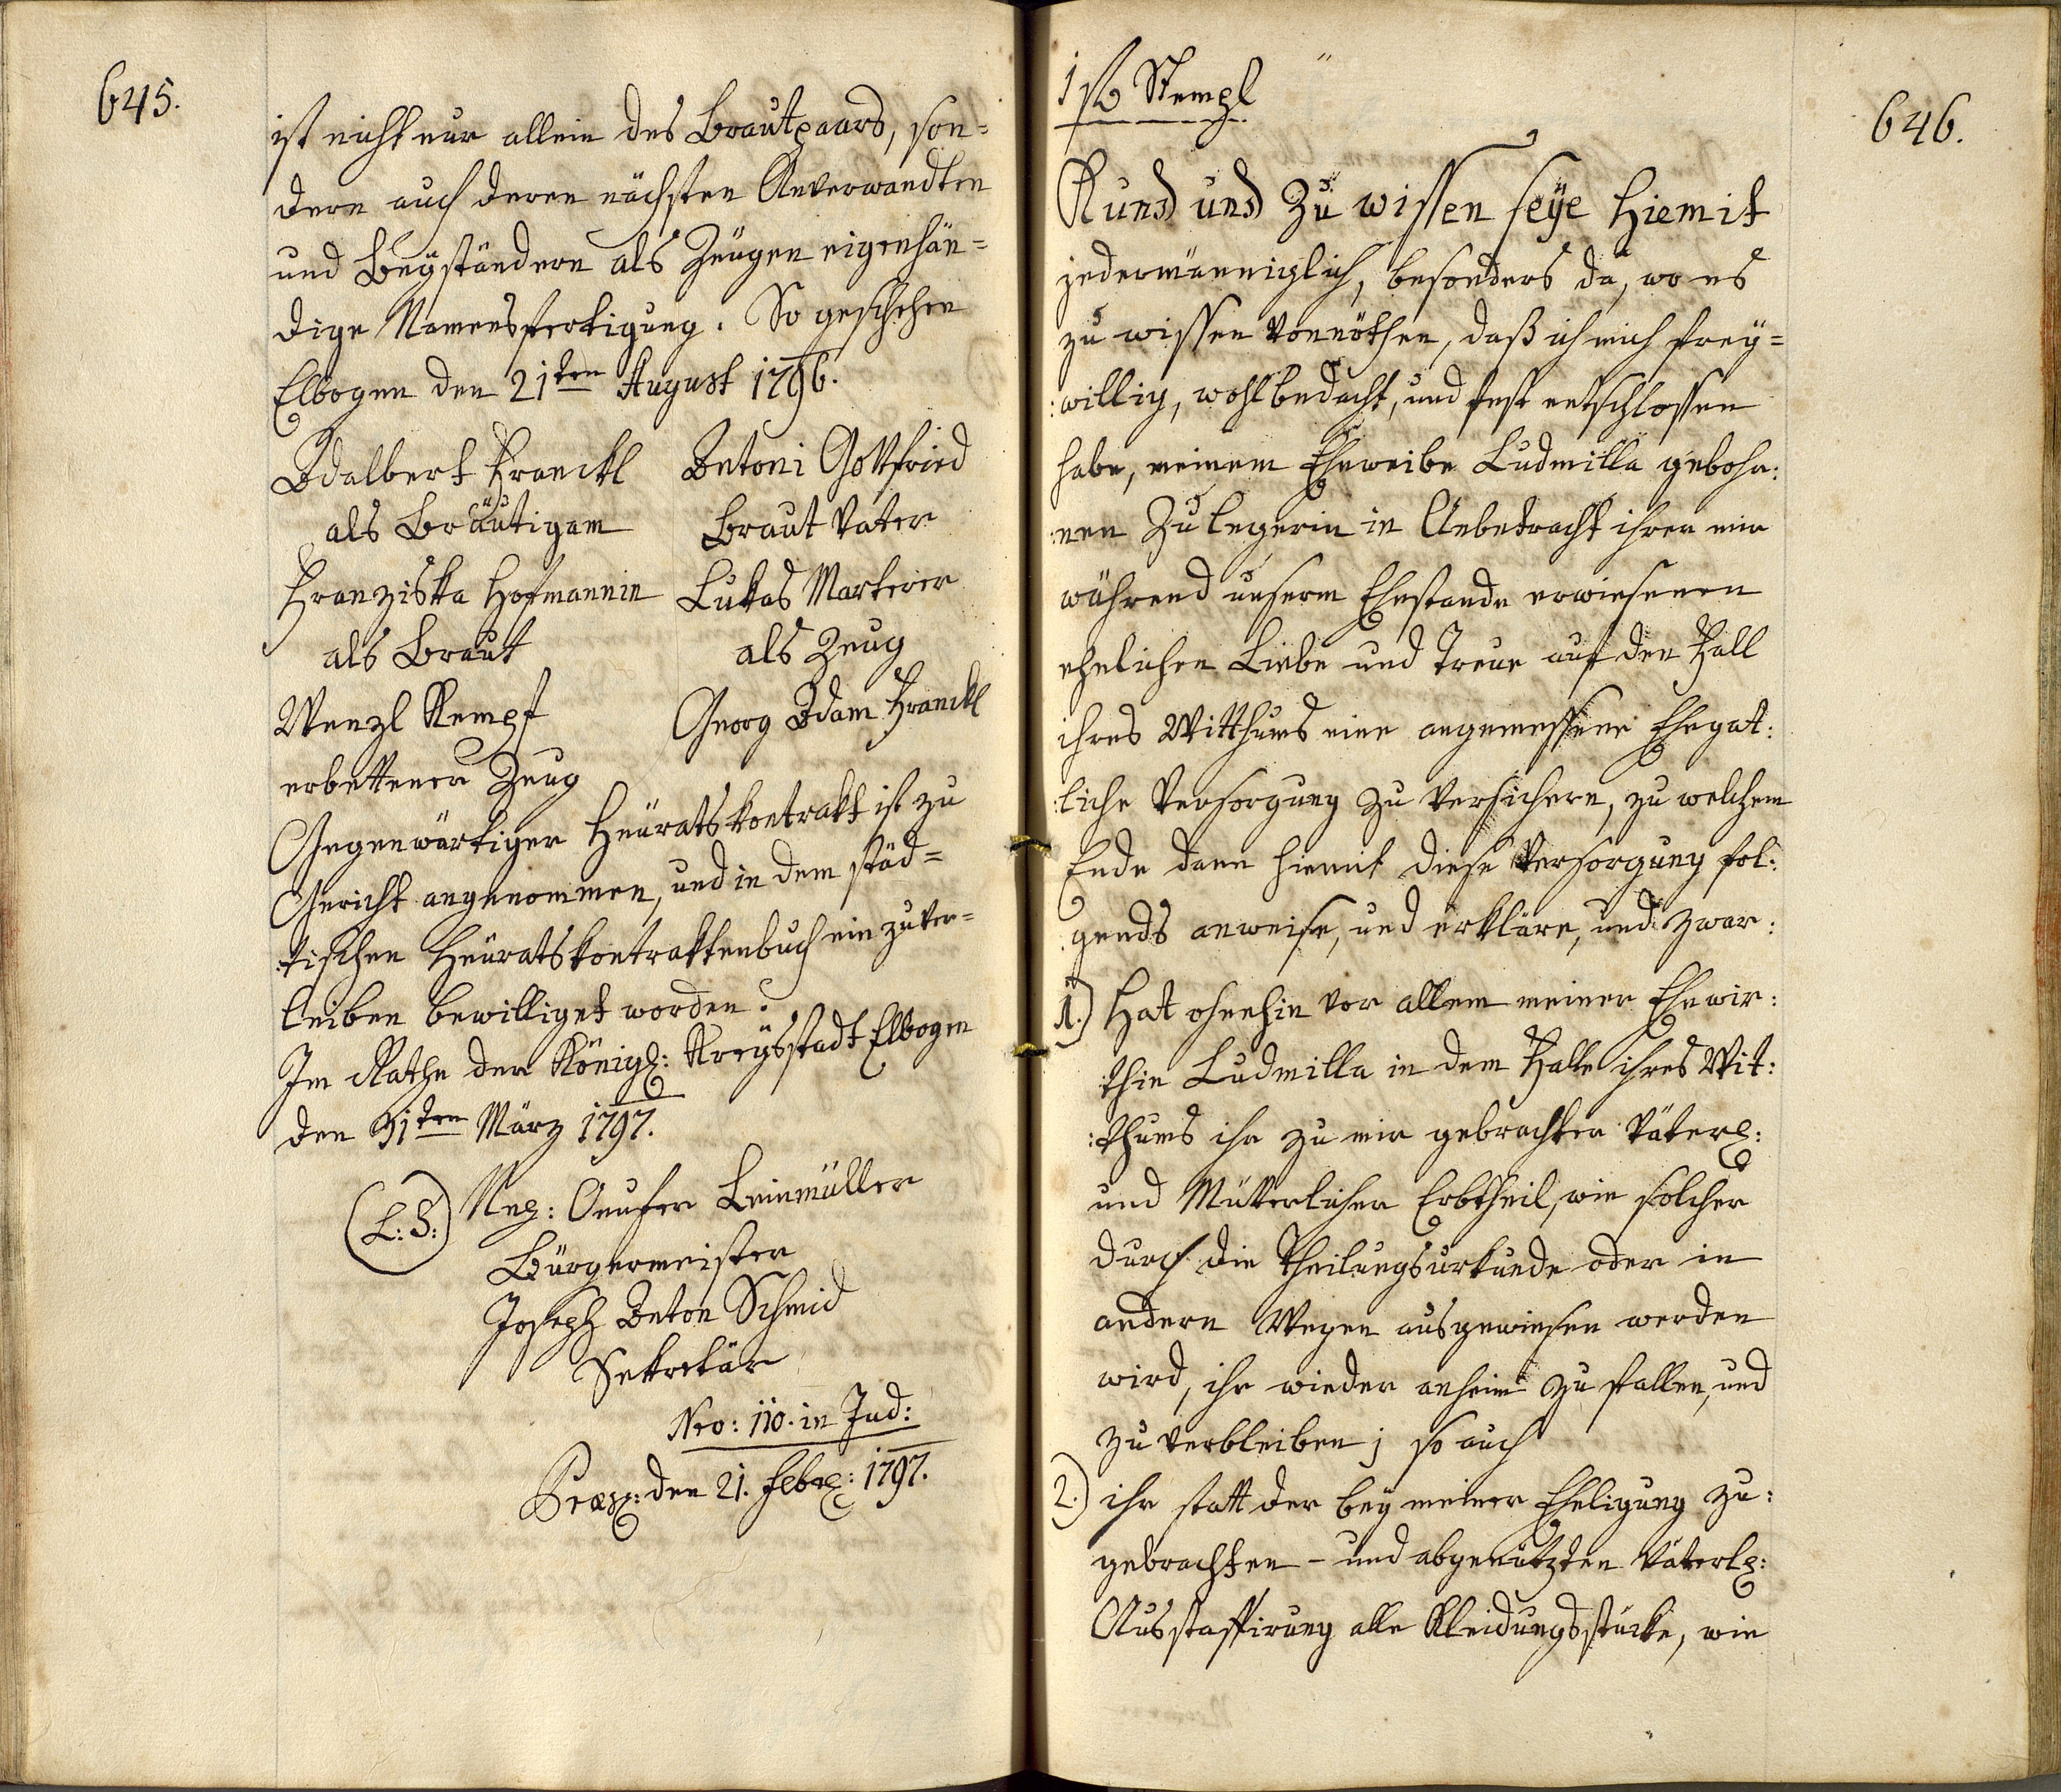 645.
ist nicht nur allein des Brautpaars, son=
dern auch deren nächsten Anverwandten
und Beyständern als Zeugen eigenhän=
dige Namensfertigung. So geschehen
Elbogen den 21ten August 1796.
Adalbert Franckl
als Bräutigam
Franziska Hofmannin
als Braut
Wenzl Kempf
erbettener Zeug
Antoni Gottfried
Braut Vater
Lukas Marterer
als Zeug
Georg Adam Franckl
Gegenwärtiger Heuratskontrakt ist zu
Gericht angenommen, und in dem städ=
tischen Heuratskontraktenbuch einzuver=
leiben bewilliget worden.
Im Rathe der Königl: Kreysstadt Elbogen
den 31ten März 1797.
(L: S:) Nep: Leinmüller
Bürgermeister
Joseph Anton Schmid
Sekretär
Nro: 110. in Jud:
Praes: den 21. Febr: 1797.
646.
1 f Stempl
Kund und Zu wissen seye hiemit
jedermänniglich, besonders da, wo es
zu wissen vonnöthen, daß ich mich frey=
:willig, wohlbedacht, und fest entschlossen
habe, meinem Eheweibe Ludmilla gebohr:
:nen Zulegerin in Anbetracht ihrer mir
während unserm Ehestande erwiesenen
ehelichen Liebe und Treue auf den Fall
ihres Witthums eine angemessene Ehegat:
:liche Versorgung zu versichern, zu welchem
Ende dann hiemit diese Versorgung fol:
:gends anweise, und erkläre, und zwar:
1.) Hat ohnehin vor allem meiner Ehewir:
:thin Ludmilla in dem Falle ihres Wit:
:thums ihr zu mir gebrachter Väterl:
und Mütterlicher Erbtheil, wie solcher
durch die Theilungsurkunde oder in
andern Wegen ausgewiesen werden
wird, ihr wieder anheim zu fallen, und
zu verbleiben; so auch
2.) ihr statt der bey meiner Eheligung zu:
gebrachten - und abgenützten Väterl:
Ausstaffirung alle Kleidungsstücke, wie